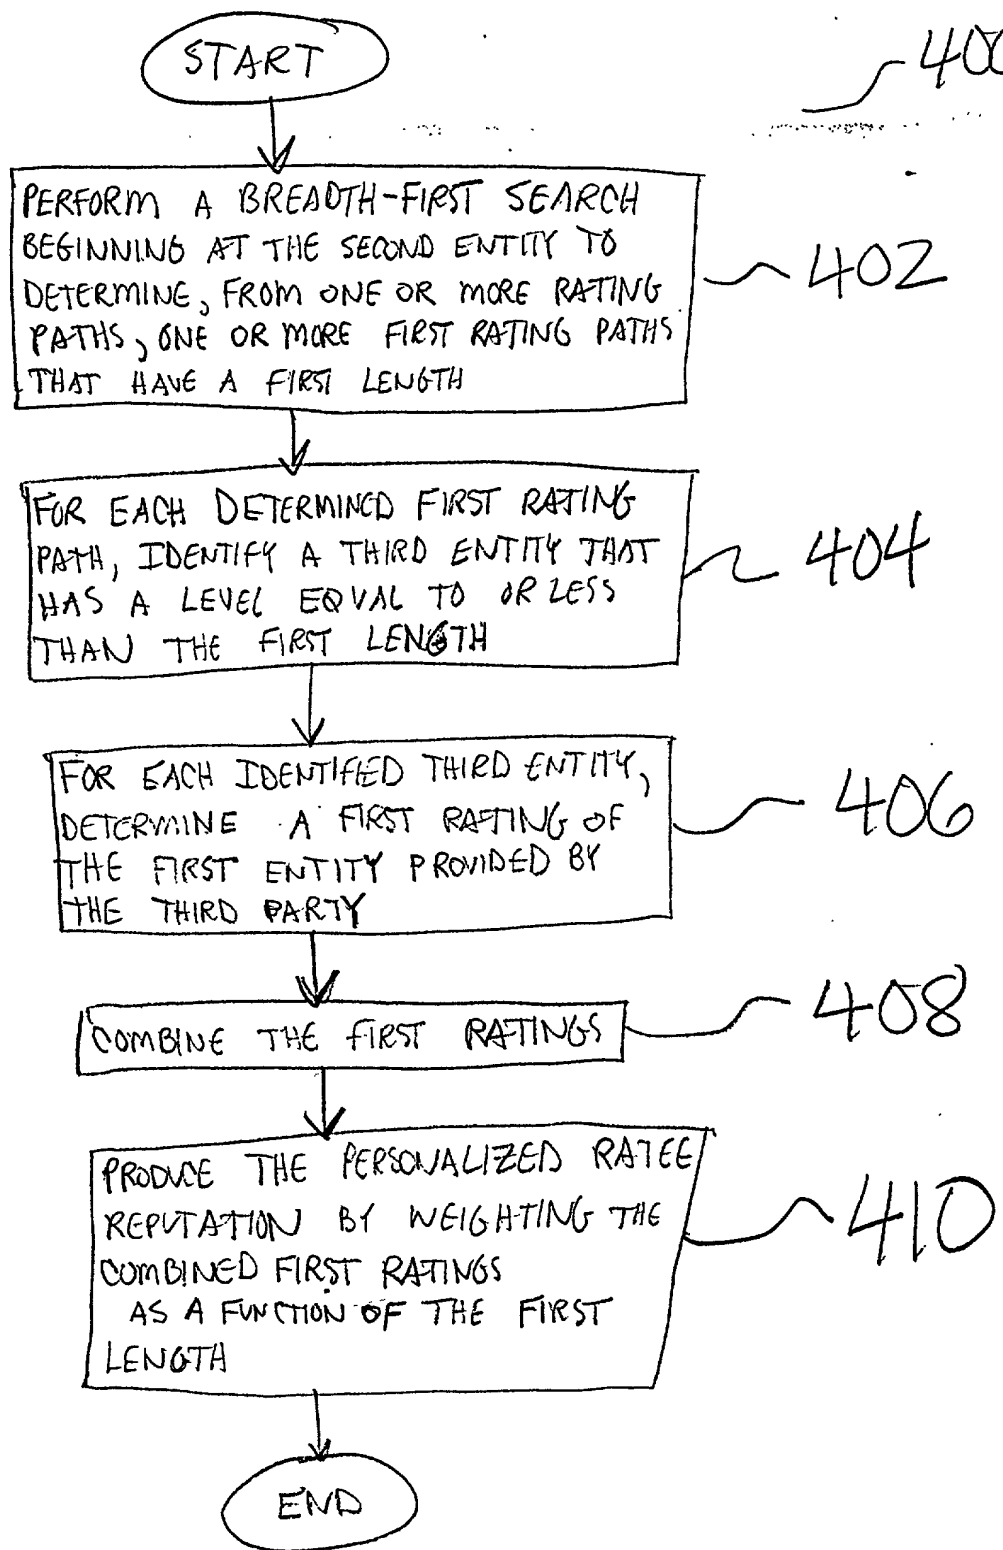 START
400
PERFORM A BREADTH-FIRST SEARCH
BEGINNING AT THE SECOND ENTITY TO
DETERMINE, FROM ONE OR MORE RATING
PATHS, ONE OR MORE FIRST RATING PATHS
THAT HAVE A FIRST LENGTH
402
FOR EACH DETERMINED FIRST RATING
PATH, IDENTIFY A THIRD ENTITY THAT
HAS A LEVEL EQUAL TO OR LESS
THAN THE FIRST LENGTH
404
FOR EACH IDENTIFIED THIRD ENTITY,
DETERMINE A FIRST RATING OF
THE FIRST ENTITY PROVIDED BY
THE THIRD PARTY
406
COMBINE THE FIRST RATINGS
408
PRODUCE THE PERSONALIZED RATEE
REPUTATION BY WEIGHTING THE
COMBINED FIRST RATINGS
AS A FUNCTION OF THE FIRST
LENGTH
410
END